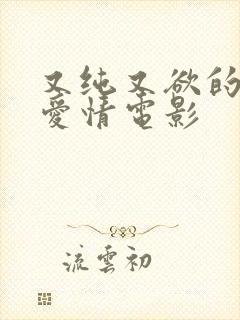 又纯又欲的
愛情電影
流雲初